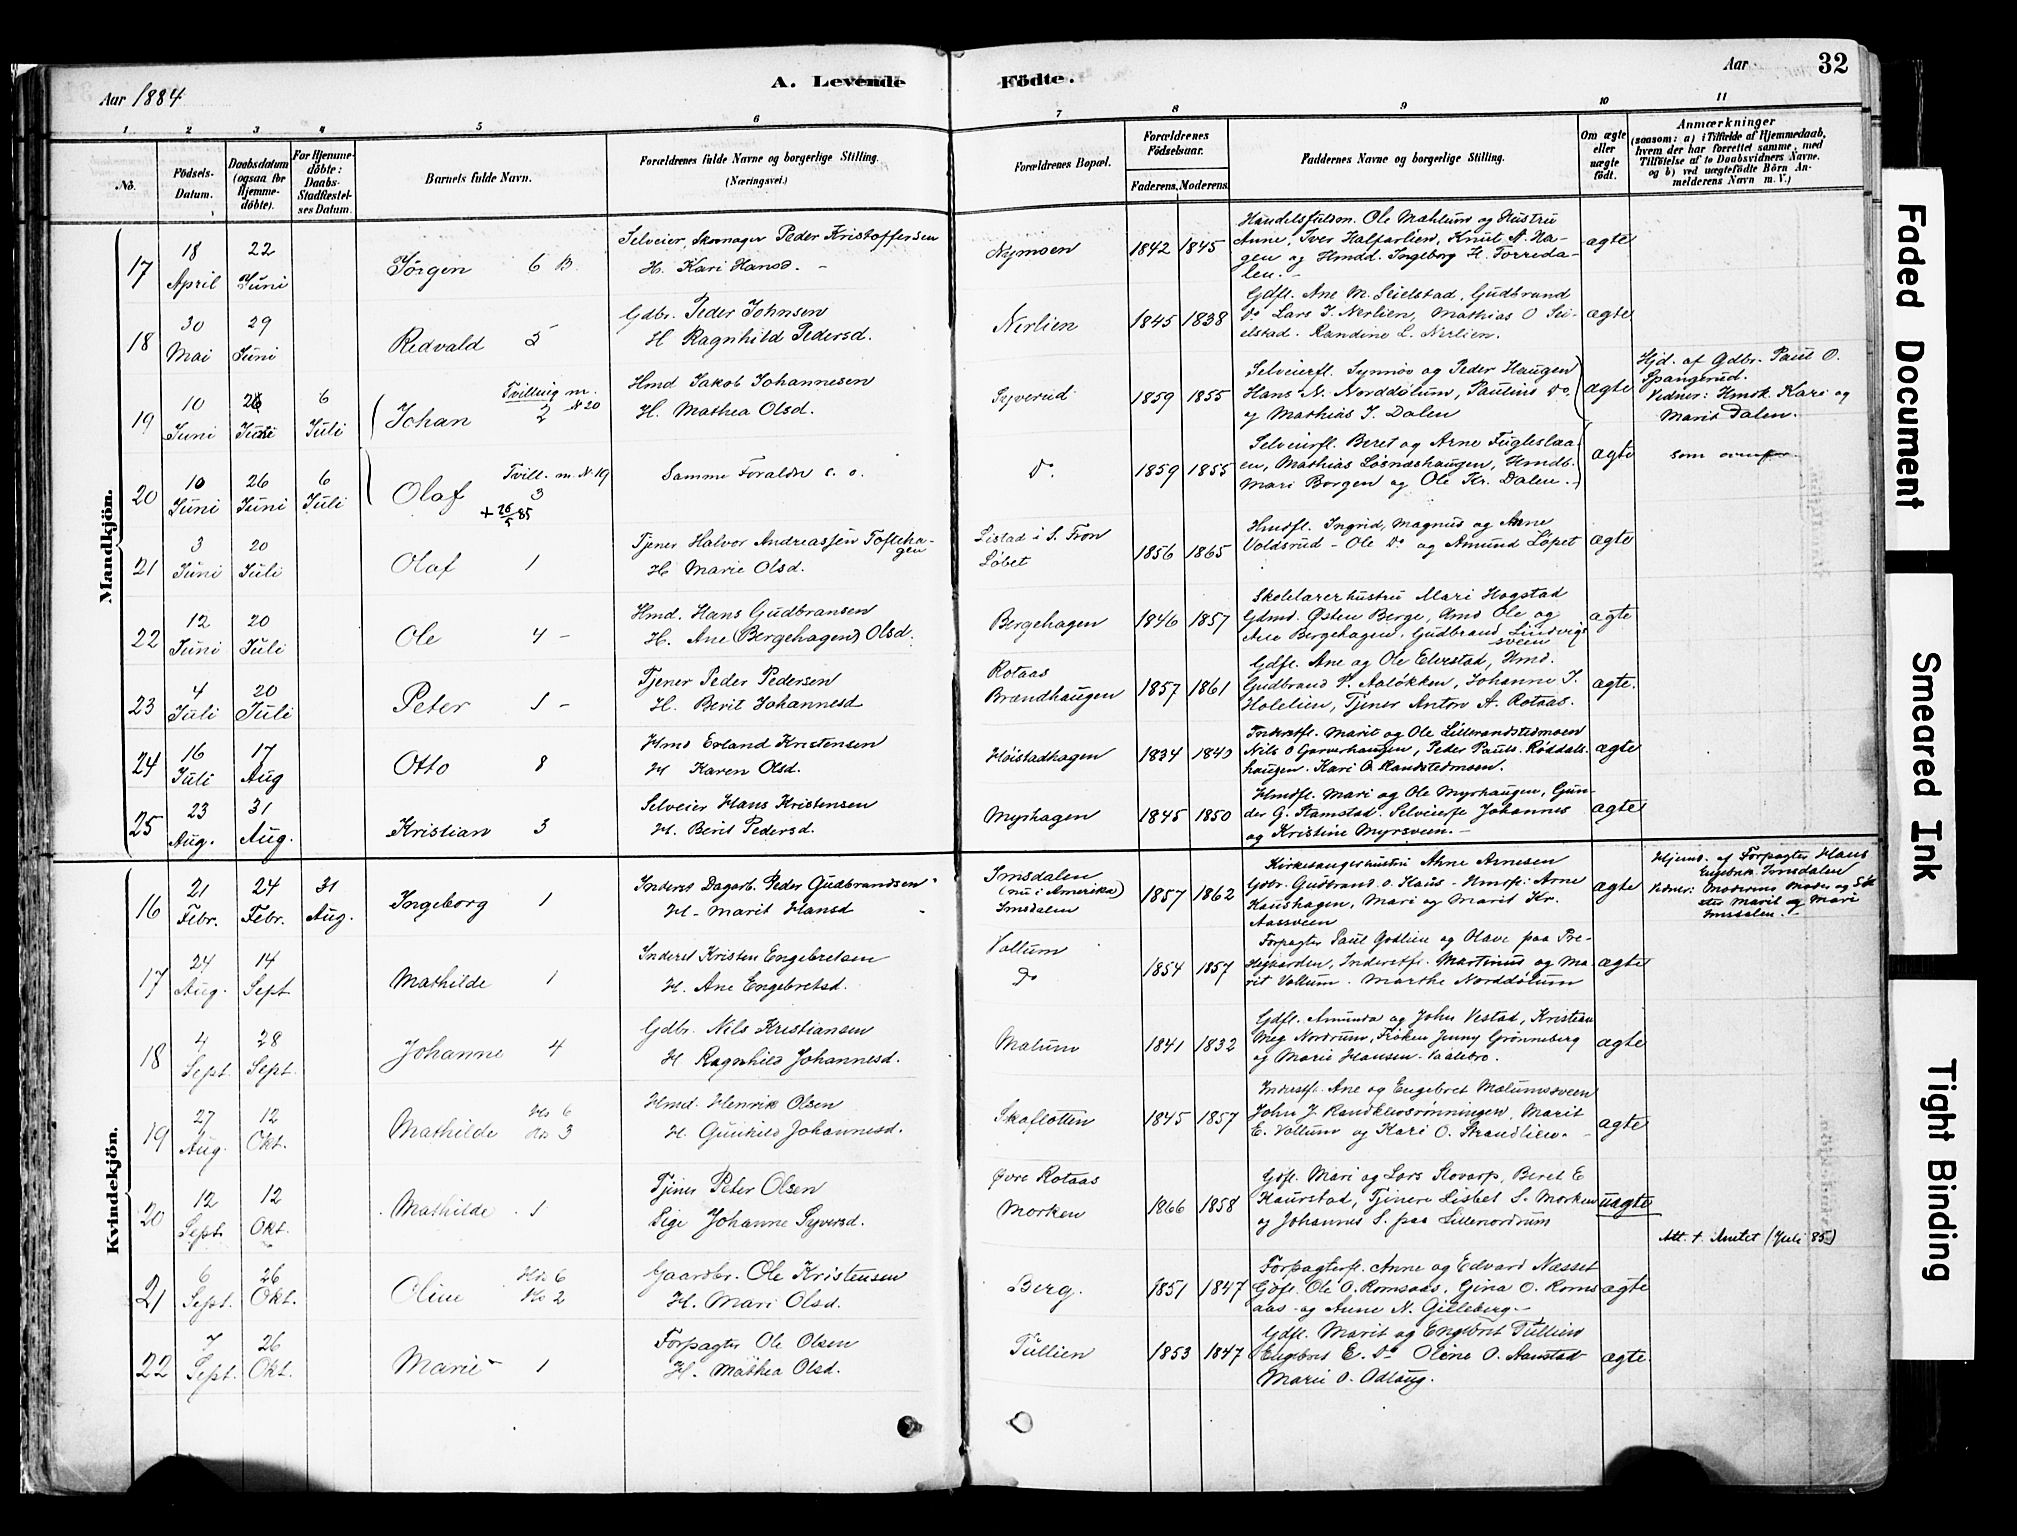 Aar 1884
A. Levende
Födte.
Aar
32
1 2 3 4 5 6 7 8 9 10 11
No.
Födsels-
Datum.
Daabsdatum
(ogsaa for
Hjemme-
döbte).
For Hjemme-
döbte:
Daabs-
Stadfæstel-
ses Datum.
Barnets fulde Navn.
Forældrenes fulde Navne og borgerlige Stilling.
(Næringsvei.)
Forældrenes Bopæl.
Forældrenes
Födselsaar.
Faderens. Moderens.
Faddernes Navne og borgerlige Stilling.
Om ægte
eller
uægte
födt.
Anmærkninger
(saasom: a) i Tilfælde af Hjemmedaab,
hvem der har forrettet samme, med
Tilföielse af to Daabsvidners Navne.
og b) ved uægtefödte Börn An-
melderens Navn m. V.)
Mandkjön.
17
18 April
22 Juni
Jörgen 6 B.
Selveier, Skomager Peder Kristoffersen
H. Kari Hansd. -
Nymoen
1842 1845
Handelsfuldm. Ole Mæhlum og Hustru
Anne, Iver Halfarlien, Knut N. Ha-
gen og Hmdd. Ingeborg H. Forreda-
len. -
ægte
18
30 Mai
29 Juni
Redvald 5
Gdbr. Peder Johnsen
H Ragnhild Pedersd.
Nerlien
1845 1838
Gdfl. Ane M. Seielstad, Gudbrand
Do Lars J. Nerlien, Mathias O Sei-
elstad. Randine L. Nerlien.
ægte
19
10 Juni
26 Juni
6 Juli
Johan 2
Tvilling m.
N 20
Hmd Jakob Johannesen
H. Mathea Olsd.
Syverud
1859 1855
Selveierfl. Synnöv og Peder Haugen
Hans N. Norddölum, Paulius Do.
og Mathias J. Dalen
ægte
Hjd. af Gdbr. Paul O.
Spangerud.
Vidner: Hmsk. Kari og
Marit Dalen.
20
10 Juni
26 Juni
6 Juli
Olaf 3
Tvill. m N 19
+ 26/5 85
Samme Foraldre s. o.
Do.
1859 1855
Selveierfl. Beret og Arne Fugleslaa-
en, Mathias Lösnæshaugen, Hmdb.
Mari Borgen og Ole Kr. Dalen. -
ægte
som ovenfor
21
3 Juni
20 Juli
Olaf 1
Tjener Halvor Andreassen Tofteha-
gen
H Marie Olsd.
Listad i S. Fron
Löbet
1856 1865
Hmdfl. Ingrid, Magnus og Anne
Voldsrud - Ole Do og Amund Löpet
ægte
22
12 Juni
20 Juli
Ole 4 -
Hmd. Hans Gudbransen
H. Ane (Bergehagen) Olsd.
Bergehagen
1846 1857
Skolelærerhustru Mari Hogstad
Gdmd. Østen Berge, Hmd Ole og
Ane Bergehagen. Gudbrand Lindvig
sveen
ægte
23
4 Juli
20 Juli
Peter 1 -
Tjener Peder Pedersen
H. Berit Johannesd
Rotaas
Brændhaugen
1857 1861
Gdfl. Ane og Ole Elvestad, Hmd.
Gudbrand P. Aalökken, Johanne J.
Holelien, Tjener Anton A. Rotaas.
ægte.
24
16 Juli
17 Aug
Otto 8
Hmd Erland Kristensen
H Karen Olsd.
Höistadhagen
1834 1840
Inderstfl. Marit og Ole Lillerandstedmoen
Nils O Garverhaugen, Peder Pauls. Röddals-
haugen. Kari O Randstedmoen.
ægte
25
23 Aug.
31 Aug.
Kristian 3
Selveier Hans Kristensen
H. Berit Pedersd.
Myrhagen
1845 1850
Hmdfl. Mari og Ole Myrhaugen, Gun-
der G. Stamstad. Selveierfl Johannes
og Kristine Myrsveen. -
ægte
Kvindekjön.
16
21 Febr.
24 Febr.
31 Aug.
Ingeborg 1
Inderst Dagarb. Peder Gudbrandsen
H - Marit Hansd
Imsdalen
(nu i Amerika)
Imsdalen
1857 1862
Kirkesangerhustru Ahne Arnesen
Gdbr. Gudbrand O. Haus - Hmfl. Arne
Haushagen, Mari og Marit Kr.
Aassveen
ægte
Hjemd. af Forpagter Hans
Engebrik. Imsdalen
Vidner: Moderens Moder og Sös
ster Marit og Mari
Imsdalen. -
17
24 Aug.
14 Sept
Mathilde 1
Inderst Kristen Engebretsen
H. Ane Engebretsd.
Vollum
Do
1854 1857
Forpagter Paul Godlien og Olave paa Pre-
stegaarden, Inderstfl. Martinus og Ma-
rit Vollum. Marthe Norddölum
ægte
18
4 Sept.
28 Sept.
Johanne 4
Gdbr. Nils Kristiansen
H Ragnhild Johannesd.
Malum
1841 1832
Gdfl. Amunda og John Vestad, Kristian
Meg Nordrum, Fröken Jenny Grönneberg
og Marie Hansen Vaalebro.
ægte
19
27 Aug.
12 Okt.
Mathilde
Hs 6
Hs 3
Hmd. Henrik Olsen
H. Gunhild Johannesd.
Skaflotten
1845 1857
Inderstfl. Ane og Engebret Mælumsveen
John J. Randklevsrönningen, Marit
E. Vollum og Kari O. Strandlien. -
ægte
20
12 Sept
12 Okt.
Mathilde 1
Tjener Peter Olsen
Pige Johanne Syversd.
Øvre Rotaas
Morken
1866 1858
Gdfl. Mari og Lars Stovarp, Beret E
Haurstad, Tjenere Lisbet S. Morken
og Johannes S. paa Lillenordrum
uægte
Att. t. Amtet (Juli 85)
21
6 Sept.
26 Okt.
Oline
Hs 6
Hs 2
Gaardbr. Ole Kristensen
H. Mari Olsd.
Berg.
1851 1847
Forpagterfl. Anne og Edvard Næsset
Gdfl. Ole O. Romsaas, Gina O. Roms
aas - og Anne N. Gilleberg -
ægte
22
7 Sept.
26 Okt.
Marie - 1
Forpagter Ole Olsen
H. Mathea Olsd.
Tullien
1853 1847
Gdfl. Marit og Engebret Tullien
Engebret E. Do Oline O. Aanstad
Marie O. Odlaug.
ægte.
Faded Document
Smeared Ink
Tight Binding